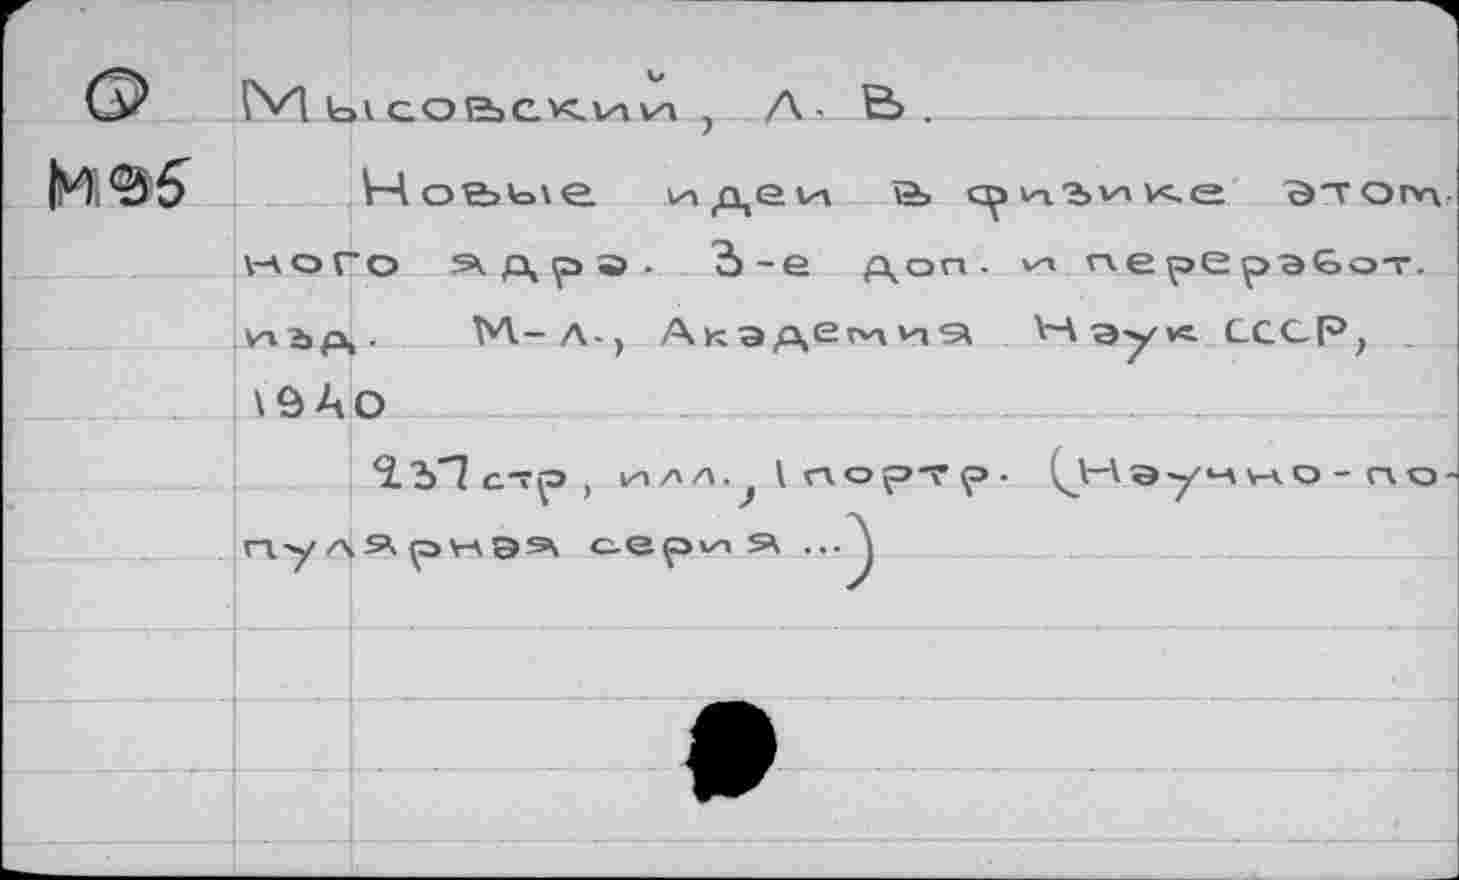 Мысовский, Л. В.
М95
Новые идеи в физике этом
ного ядра. 3-е доп. и переработ.
изд. М-Л., Академия Наук СССР,
1940
237 стр, илл., 1 портр. (Научно-по-
пулярная серия ...)